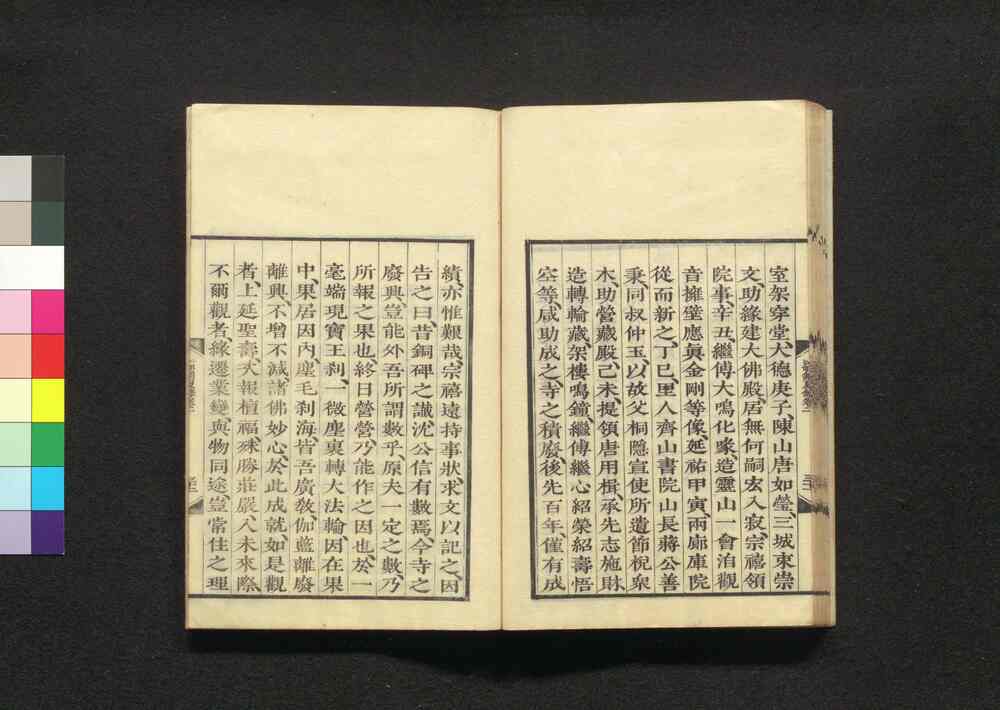 室架穿堂、大德庚子、陳山唐如瑩、三城東崇
文、助緣建大佛殿、居無何嗣宏入寂、宗禧領
院事、辛丑、繼傅大鳴化衆、造靈山一會洎觀
音擁壁應眞金剛等像、延祐甲寅、兩廊庫院
從而新之、丁巳、里人齊山書院山長蔣公善
秉、同叔仲玉、以故父桐隱宣使所遺節稅衆
木、助營藏殿、己未、提領唐用楫、承先志施財、
造轉輪藏、架樓鳴鐘、繼傅繼心紹榮紹壽悟
空等、咸助成之、寺之積廢、後先百年、僅有成
績、亦惟艱哉、宗禧遠持事狀、求文以記之、因
告之曰、昔銅碑之讖、沈公信有數焉、今寺之
廢興、豈能外吾所謂數乎、原夫一定之數、乃
所報之果也、終日營營、乃能作之因也、於一
毫端現寶王刹、一微塵裏轉大法輪、因在果
中、果居因內、塵毛刹海、皆吾廣敎伽藍、離廢
離興、不增不減、諸佛妙心、於此成就、如是觀
者、上延聖壽、大報檀福、殊勝莊嚴、八未來際、
不爾觀者、緣遷業變、與物同途、豈常住之理